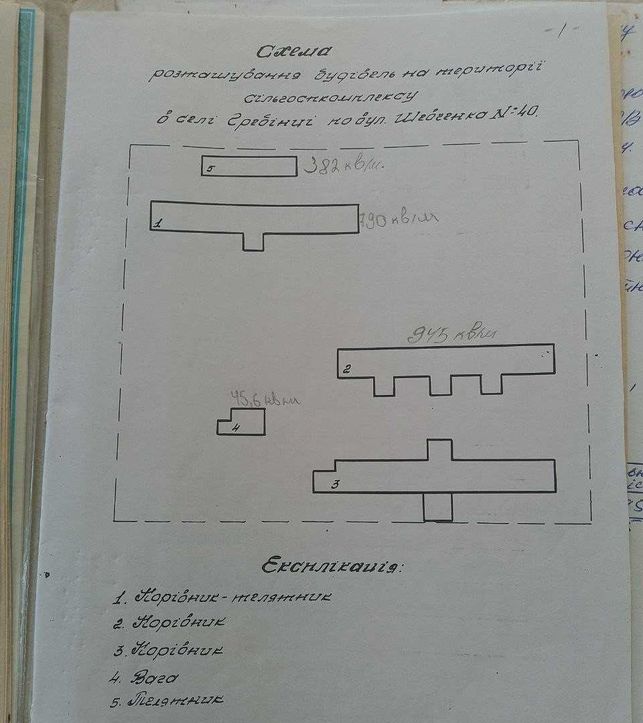 -1-
Схема
розташування будівель на території
сільгоспкомплексу
в селі Гребінці по вул. Шевченка №40.
5 382 кв/м.
1 790 кв/м
945 кв/м
2
45,6 кв м
4
3
Експлікація:
1. Корівник-телятник
2. Корівник
3. Корівник
4. Вага
5. Телятник